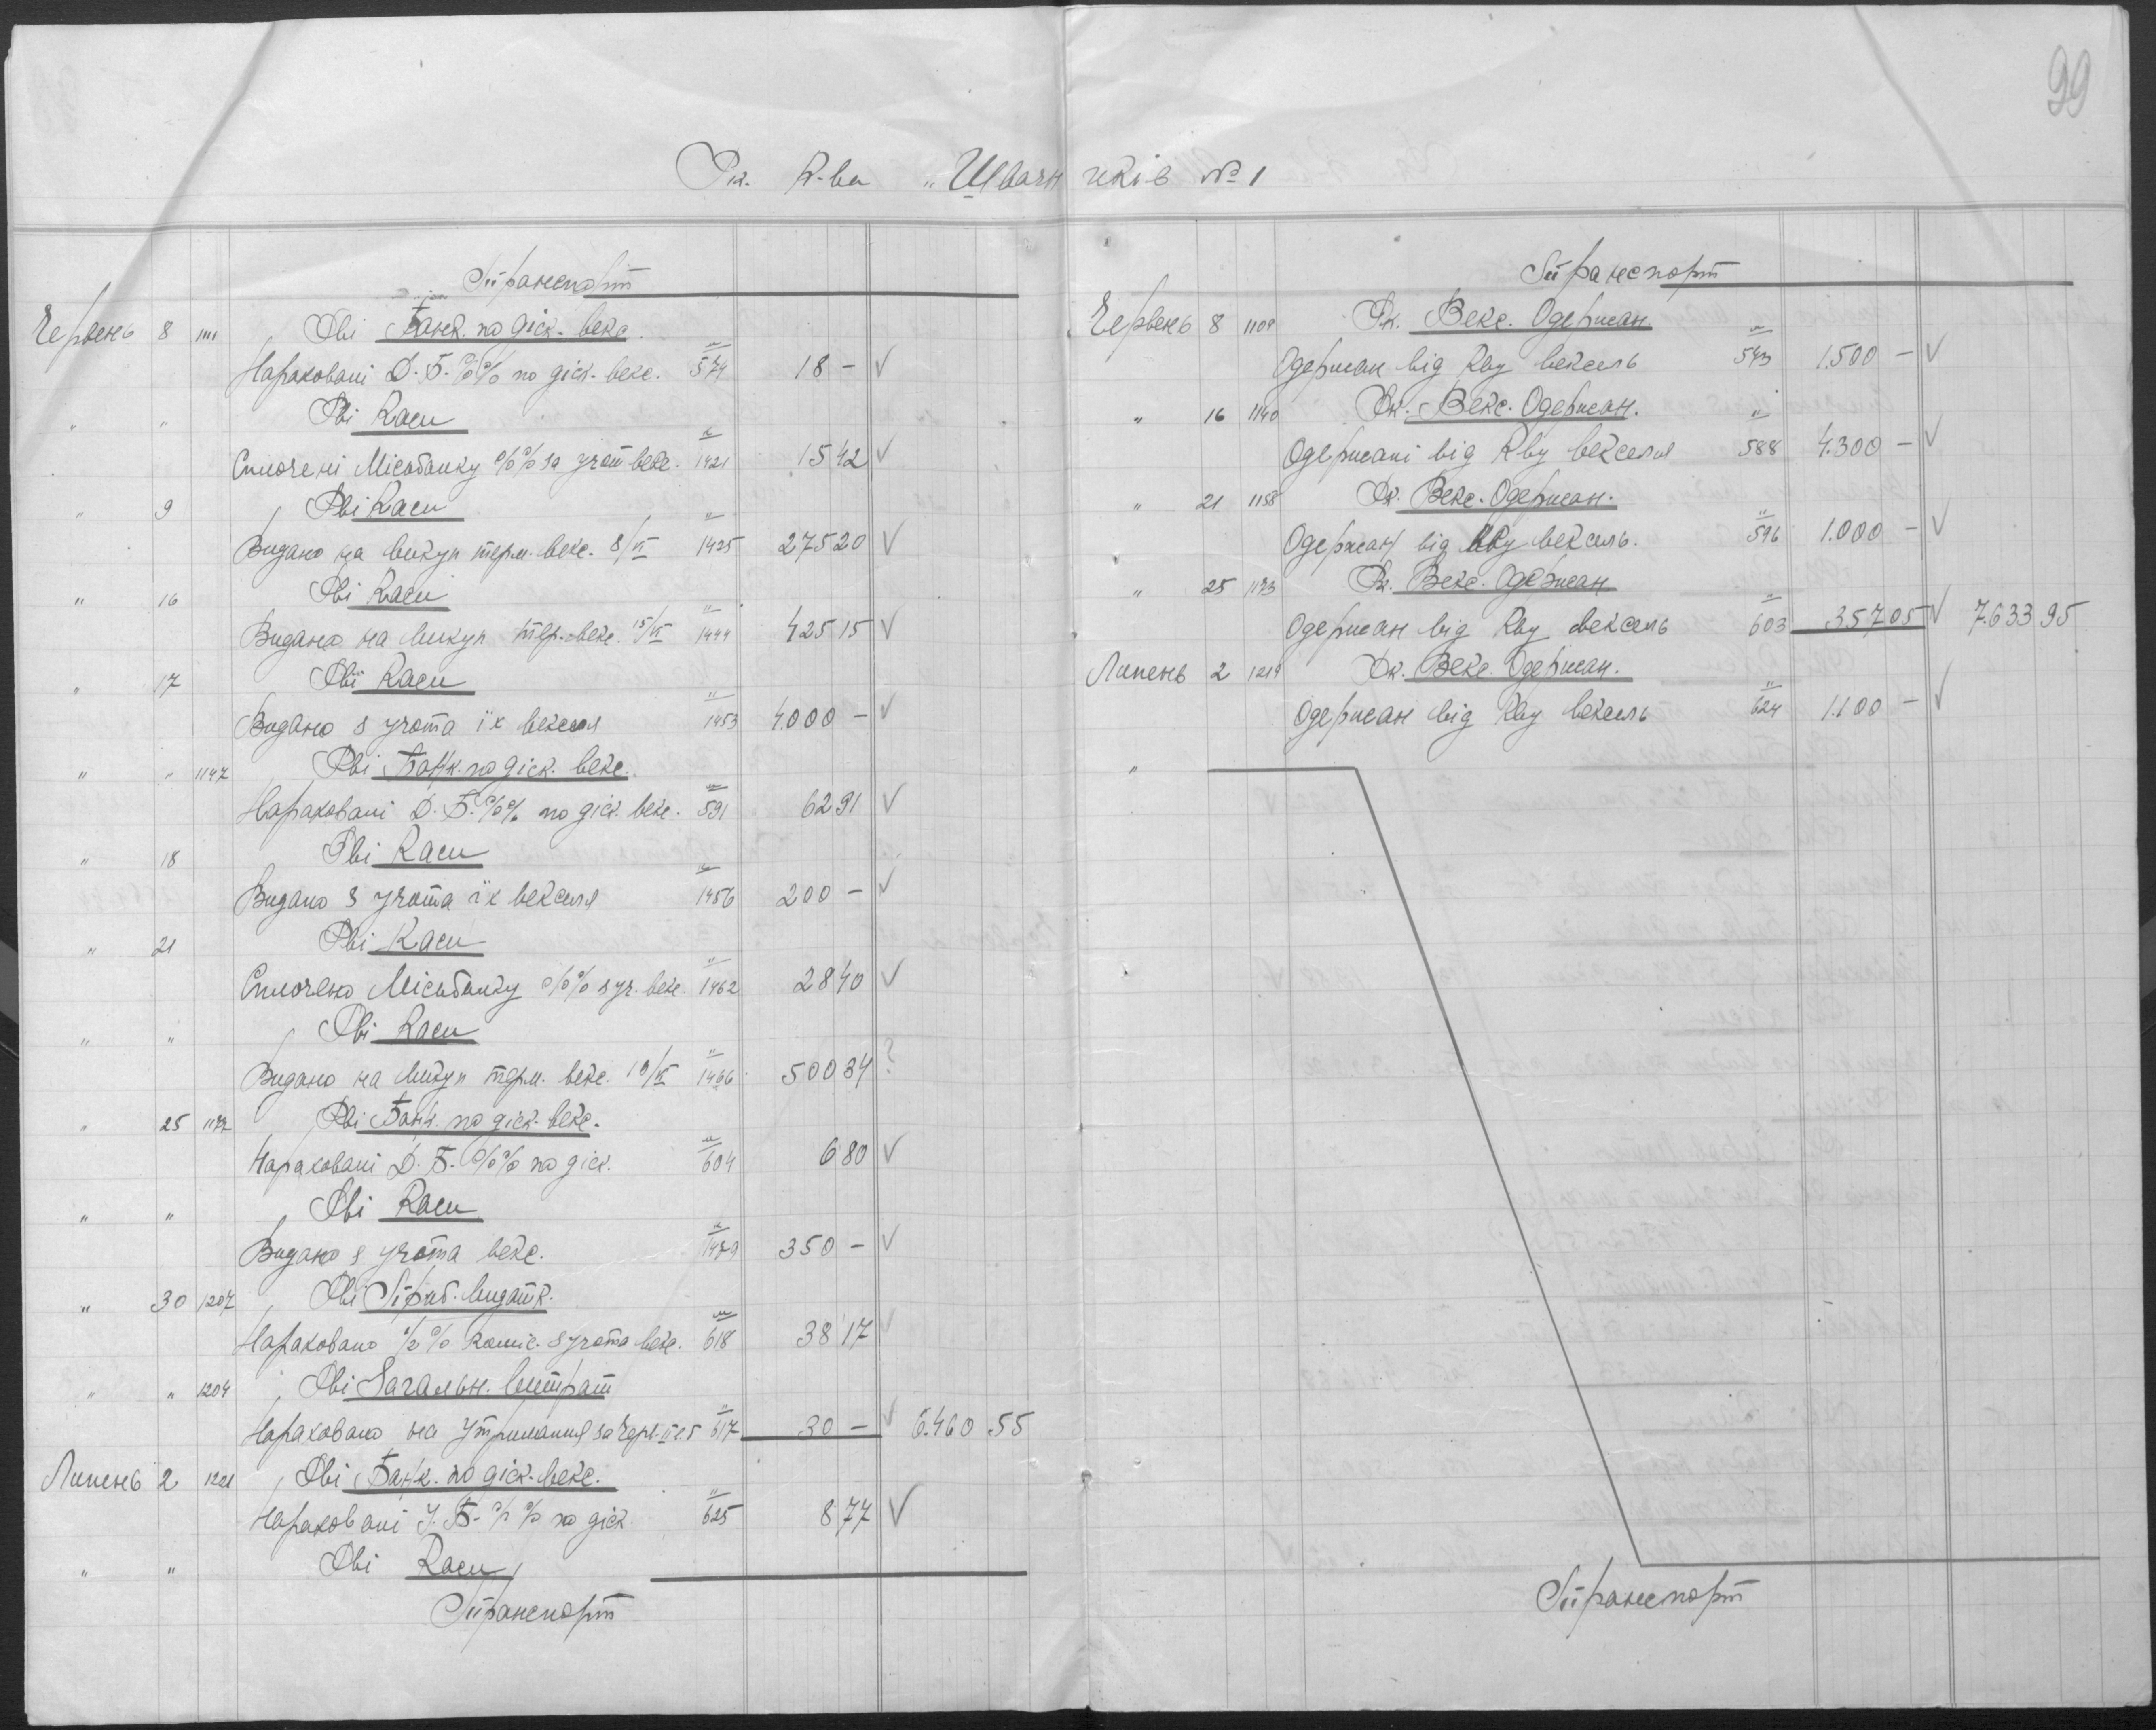 99
Рк. К-ва „Швачн иків № 1
Транспорт
Червень 8 1111 Рві Банк. по діск. векс.
Нараховані Д. Б. %% по діск. векс. 574 18 — √
" " Рві Каси
Сплочені Місьбанку %% за учот векс. 1421 15 42 √
" 9 Рві Каси
Видано на викуп терм. векс. 8/VI 1425 275 20 √
" 16 Рві Каси
Видано на викуп тер. векс. 15/VI 1444 425 15 √
" 17 Рві Каси
Видано з учота їх векселя 1453 4.000 — √
" " 1147 Рві Банк. по діск. векс.
Нараховані Д. Б. %% по діск. векс. 591 62 91 √
" 18 Рві Каси
Видано з учота їх векселя 1456 200 — √
" 21 Рві Каси
Сплочено Місьбанку %% з уч. векс. 1462 28 40 √
" " Рві Каси
Видано на викуп терм. векс. 19/VI 1466 500 34 ?
" 25 1177 Рві Банк. по діск. векс.
Нараховані Д. Б. %% по діск. 604 6 80 √
" " Рві Каси
Видано з учота векс. 1479 350 — √
" 30 1207 Рві Приб. видатк.
Нараховано %% коміс. з учота векс. 618 38 17 √
" " 1204 Рві Загальн. Витрат
Нараховано на утримання за черв. 617 30 — √ 6.460 .55
Липень 2 1221 Рві Банк. по діск. векс.
Нараховані У. Б. %% по діск. 625 8 77 √
" " Рві Каси
Транспорт
Транспорт
Червень 8 1109 Рк. Векс. Одержан.
Одержан від Кву вексель 573 1.500 — √
" 16 1140 Рк. Векс. Одержан.
Одержані від Кву векселя 588 4.300 — √
" 21 1158 Рк. Векс. Одержан.
Одержан від Кву вексель. 596 1.000 — √
" 25 1173 Рк. Векс. Одержан
Одержан від Кву вексель 603 357 05 √ 7.633 95
Липень 2 1219 Рк. Векс. Одержан.
Одержан від Кву вексель 624 1.100 — √
"
Транспорт